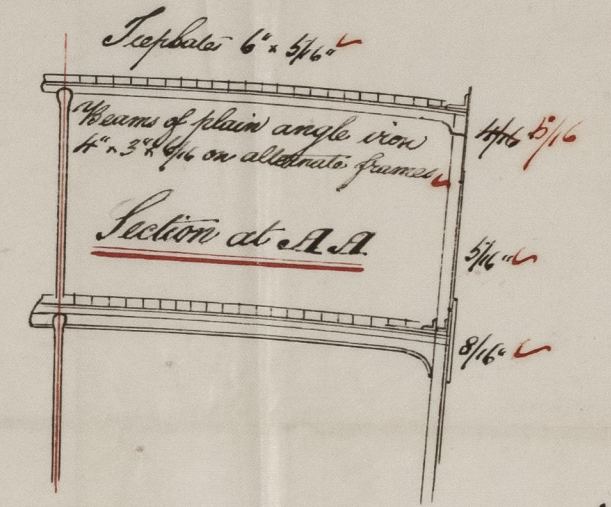 Tieplates 6" × 5/16"
Beams of plain angle iron
4" × 3" × 6/16 on alternate frames
4/16 5/16
Section at A A
5/16"
8/16"